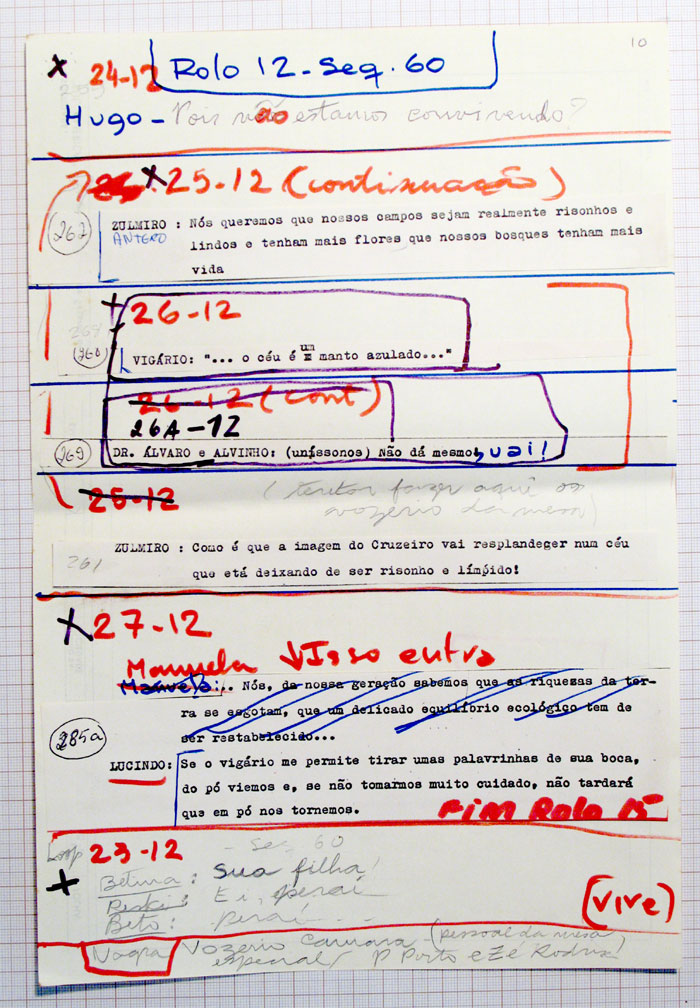 10
x 24-12 Rolo 12-Seq. 60
Hugo - Pois não estamos convivendo?
x 25-12 (continuação)
267 ZULMIRO : Nós queremos que nossos campos sejam realmente risonhos e
ANTERO lindos e tenham mais flores que nossos bosques tenham mais
vida
+ 26-12
um
VIGÁRIO: "... o céu é manto azulado..."
26-12 (cont)
26A-12
269 DR. ÁLVARO e ALVINHO: (uníssonos) Não dá mesmo, uai!
25-12
(tentar fazer aqui os
vozerio da mesa)
261 ZULMIRO : Como é que a imagem do Cruzeiro vai resplandeger num céu
que etá deixando de ser risonho e límpido!
x 27-12
Manuela ↓Isso entra
Manuela:.. Nós, da nossa geração sabemos que as riquezas da ter-
ra se esgotam, que um delicado equilíbrio ecológico tem de
285a ser restabelecido...
LUCINDO: Se o vigário me permite tirar umas palavrinhas de sua boca,
do pó viemos e, se não tomarmos muito cuidado, não tardará
que em pó nos tornemos.
FIM Rolo 15
Loop 23-12 - Seq 60
+ Betina: Sua filha!
Ei, peraí
Beto: peraí...
(vive)
Nagra Vozerio Camara - (pessoal da mesa)
especial p Porto e Zé Rodrix